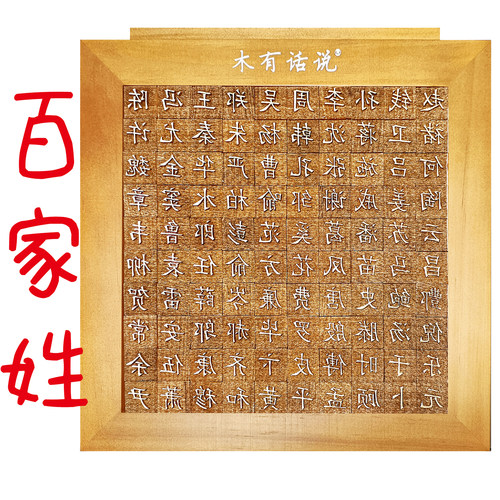 木有话说®
百家姓
赵钱孙李周吴郑王冯陈
褚卫蒋沈韩杨朱秦尤许
何吕施张孔曹严华金魏
陶姜戚谢邹喻柏水窦章
云苏潘葛奚范彭郎鲁韦
昌马苗凤花方俞任袁柳
酆鲍史唐费廉岑薛雷贺
倪汤滕殷罗毕郝邬安常
乐于时傅皮卞齐康伍余
元卜顾孟平黄和穆萧尹